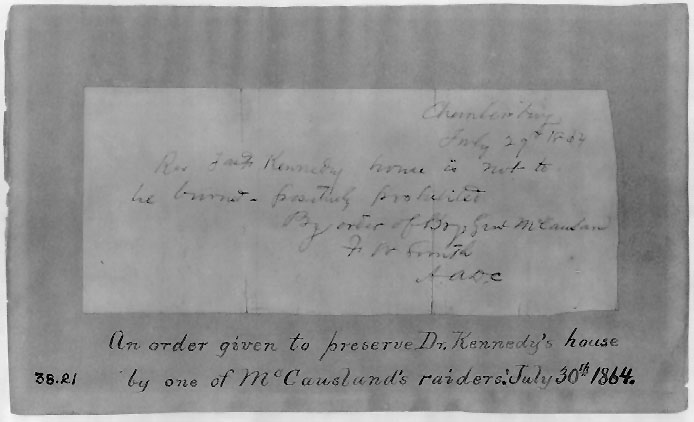 Chambersburg
July 29th 1864
Rev Kennedy house is not to
be burned - positively prohibited
By order of Brig Genl McCausland
F W Smith
A A D C
An order given to preserve Dr. Kennedy's house
38.21
by one of McCauslund's raiders. July 30th 1864.